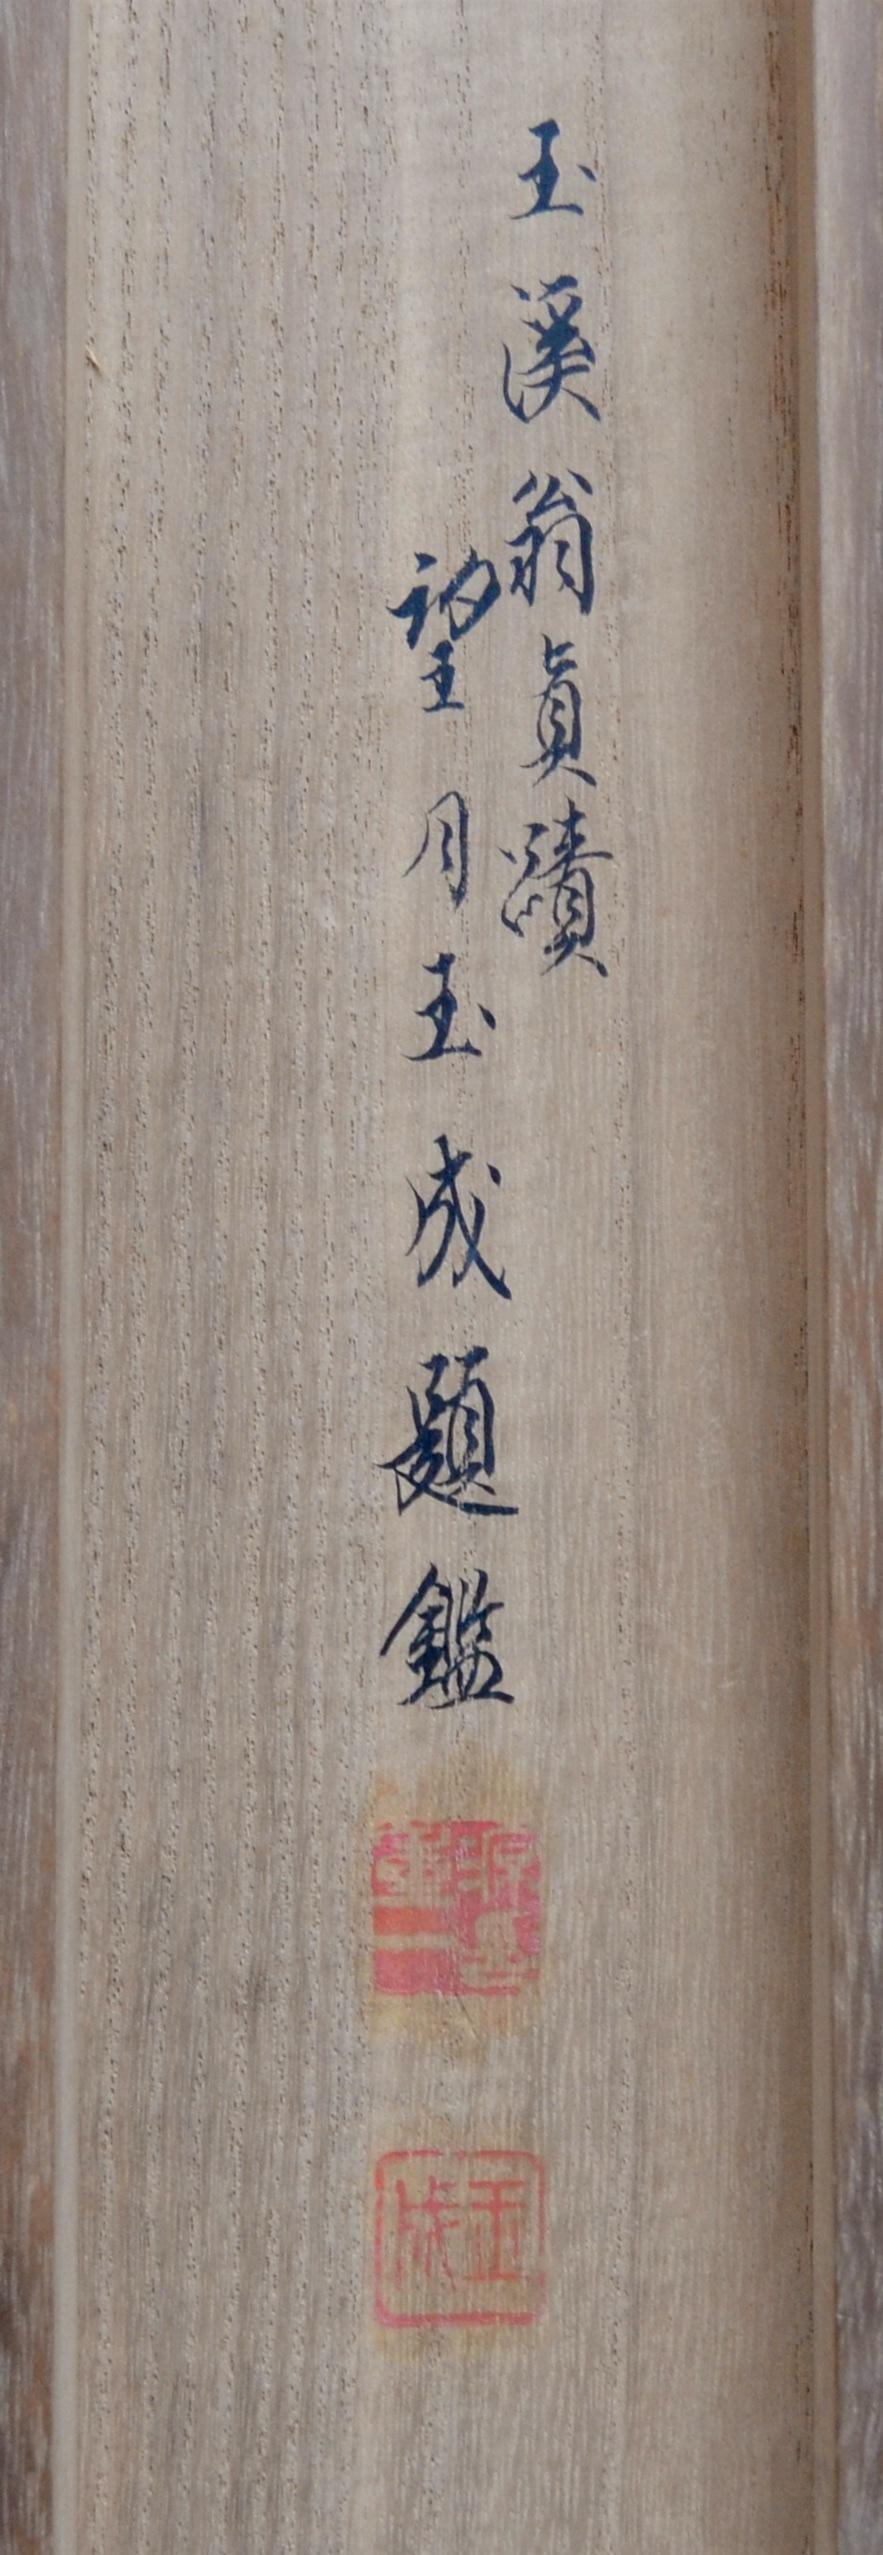 玉溪翁眞蹟
望月玉成題鑑
玉成